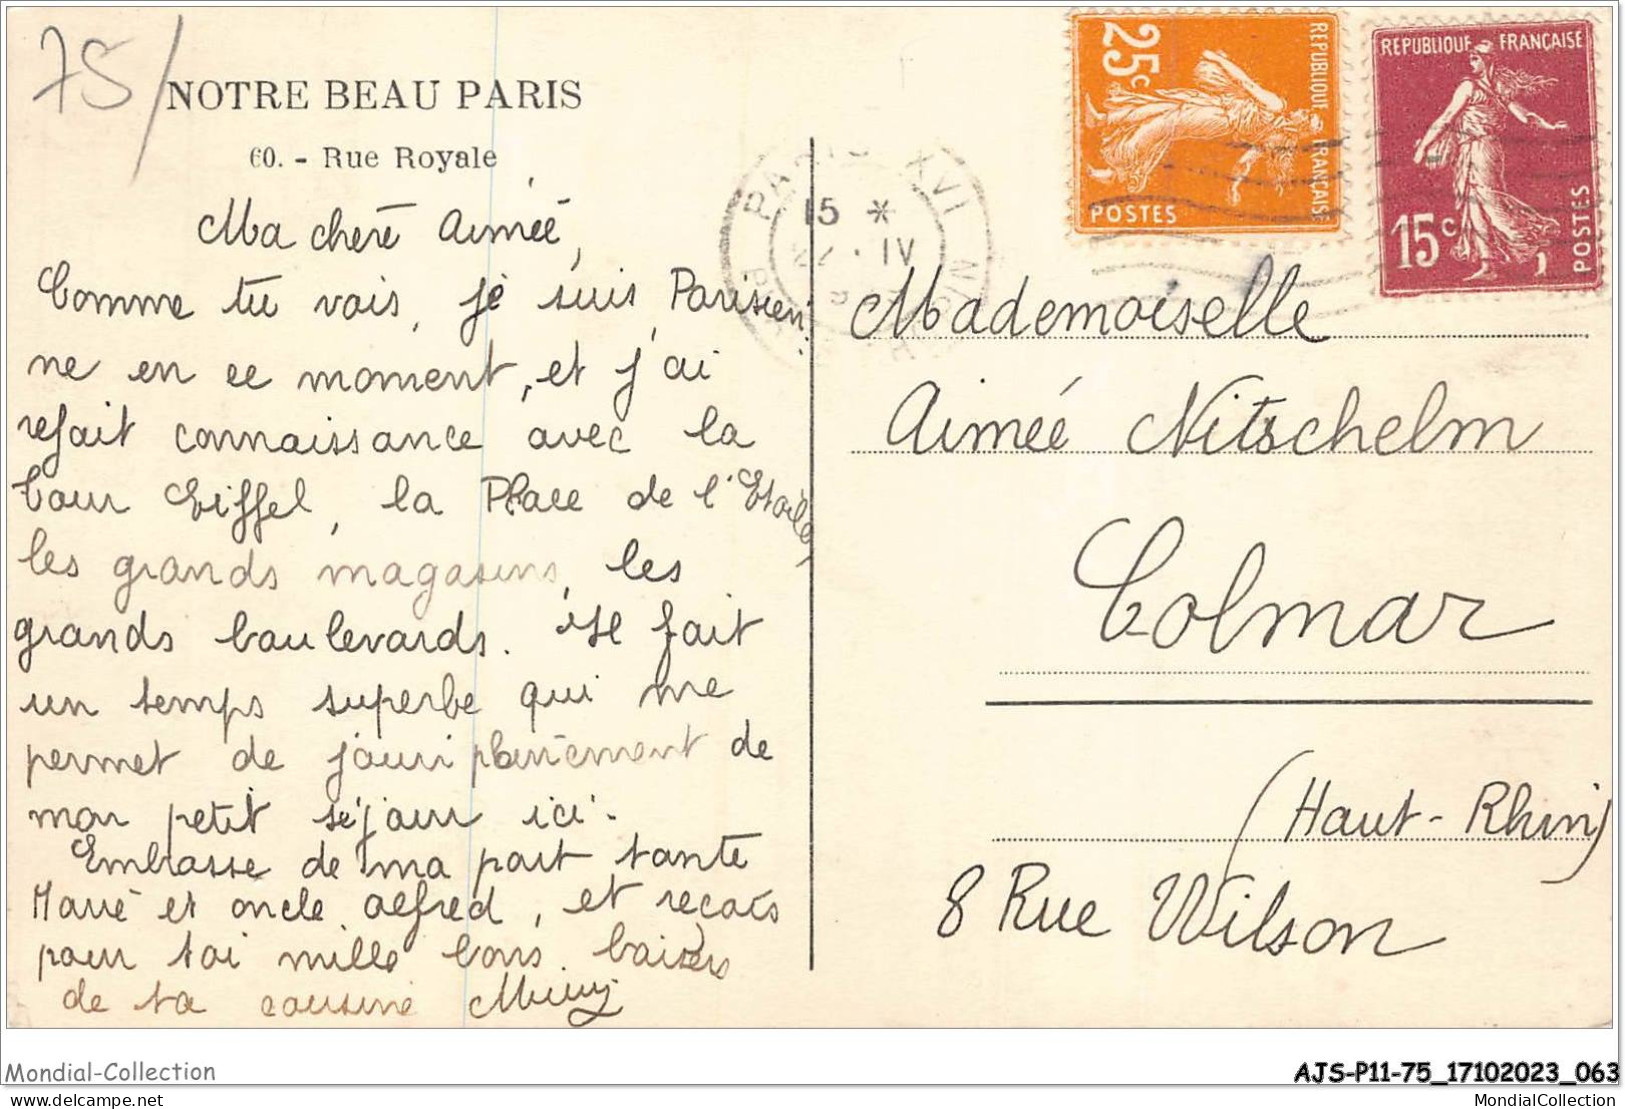 75/
NOTRE BEAU PARIS
60. - Rue Royale
Ma chère Aimée,
Comme tu vois, je suis Parisien-
ne en ce moment, et j'ai
refait connaissance avec la
Tour Eiffel, la Place de l'Etoile,
les grands magasins, les
grands boulevards. Il fait
un temps superbe qui me
permet de jouir pleinement de
mon petit séjour ici.
Embrasse de ma part tante
Marie et oncle Alfred, et reçois
pour toi mille bons baisers
de ta cousine
25c
REPUBLIQUE FRANÇAISE
POSTES
REPUBLIQUE FRANÇAISE
15c
POSTES
PARIS XVI
15 *
IV
Mademoiselle
Aimée Nitschelm
Colmar
(Haut-Rhin)
8 Rue Wilson
Mondial-Collection
AJS-P11-75_17102023_063
delcampe.net
MondialCollection